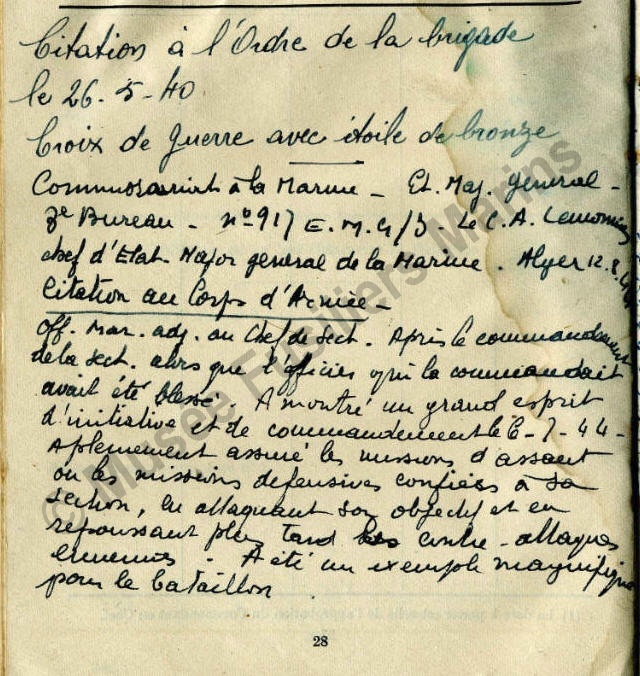 Citation à l'Ordre de la brigade
le 26-5-40
Croix de Guerre avec étoile de bronze
Commissariat à la Marine - Et. Maj. général -
3e Bureau - n° 917 E.M.G/3 - Le C.A. Lemonnier
chef d'Etat-Major general de la Marine. Alger 12.8.
Citation au Corps d'Armée -
Off. Mar. adj. au Chef de sect. Après le commandement
de la sect. alors que l'officier qui la commandait
avait été blessé. A montré un grand esprit
d'initiative et de commandement le 6-7-44-
A pleinement assuré les missions d'assaut
ou les missions defensives confiées à sa
section, en attaquant son objectif et en
repoussant plus tard les contre-attaques
ennemies - A été un exemple magnifique
pour le bataillon.
28
© Musée Fusiliers Marins